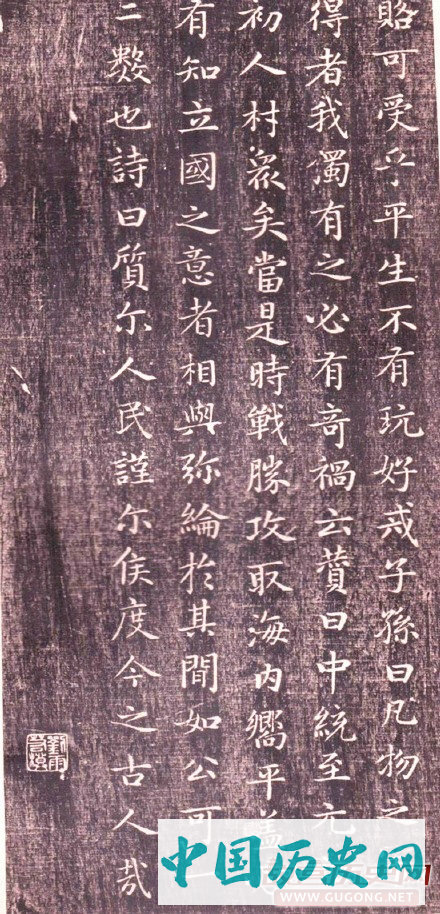 賂可受乎平生不有玩好戒子孫曰凡物之
得者我獨有之必有奇禍云贊曰中統至元
初人材眾矣當是時戰勝攻取海內嚮平蓋
有知立國之意者相與弥綸於其間如公可
二數也詩曰質尓人民謹尓侯度今之古人哉
中国历史网
WWW.GUGONG.NET